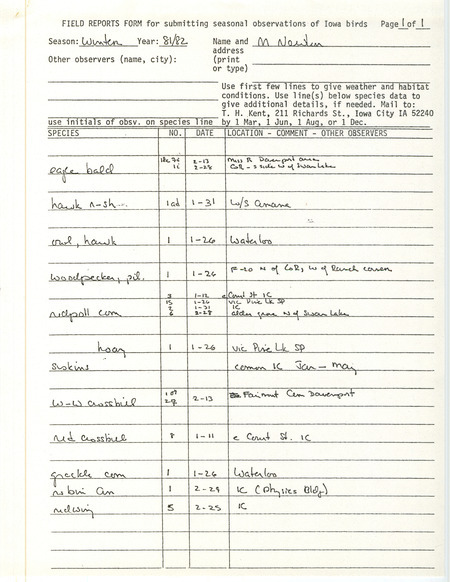 FIELD REPORTS FORM for submitting seasonal observations of Iowa birds Page 1 of 1
Season: Winter Year: 81/82 Name and M Newlon
address
Other observers (name, city): (print
or type)
Use first few lines to give weather and habitat
conditions. Use line(s) below species data to
give additional details, if needed. Mail to:
T. H. Kent, 211 Richards St., Iowa City IA 52240
use initials of obsv. on species line by 1 Mar, 1 Jun, 1 Aug, or 1 Dec.
SPECIES NO. DATE LOCATION - COMMENT - OTHER OBSERVERS
2-13 Miss R Davenport area
eagle bald 16 2-28 CoR - s side W of Swan Lake
hawk r-sh 1 ad 1-31 W/S Amana
owl, hawk 1 1-26 Waterloo
woodpecker, pil. 1 1-26 F-20 N of CoR, W of Ranch
3 1-12 e Court St IC
15 1-26 vic Pine Lk SP
2 1-31 IC
redpoll com 6 2-28 alder grove N of Swan Lake
hoary 1 1-26 vic Pine Lk SP
siskins common IC Jan - May
W-W crossbill 2-13 Fairmount Cem Davenport
red crossbill 8 1-11 e Court St. IC
grackle com 1 1-26 Waterloo
robin Am 1 2-24 IC (Physics Bldg)
redwing 5 2-25 IC